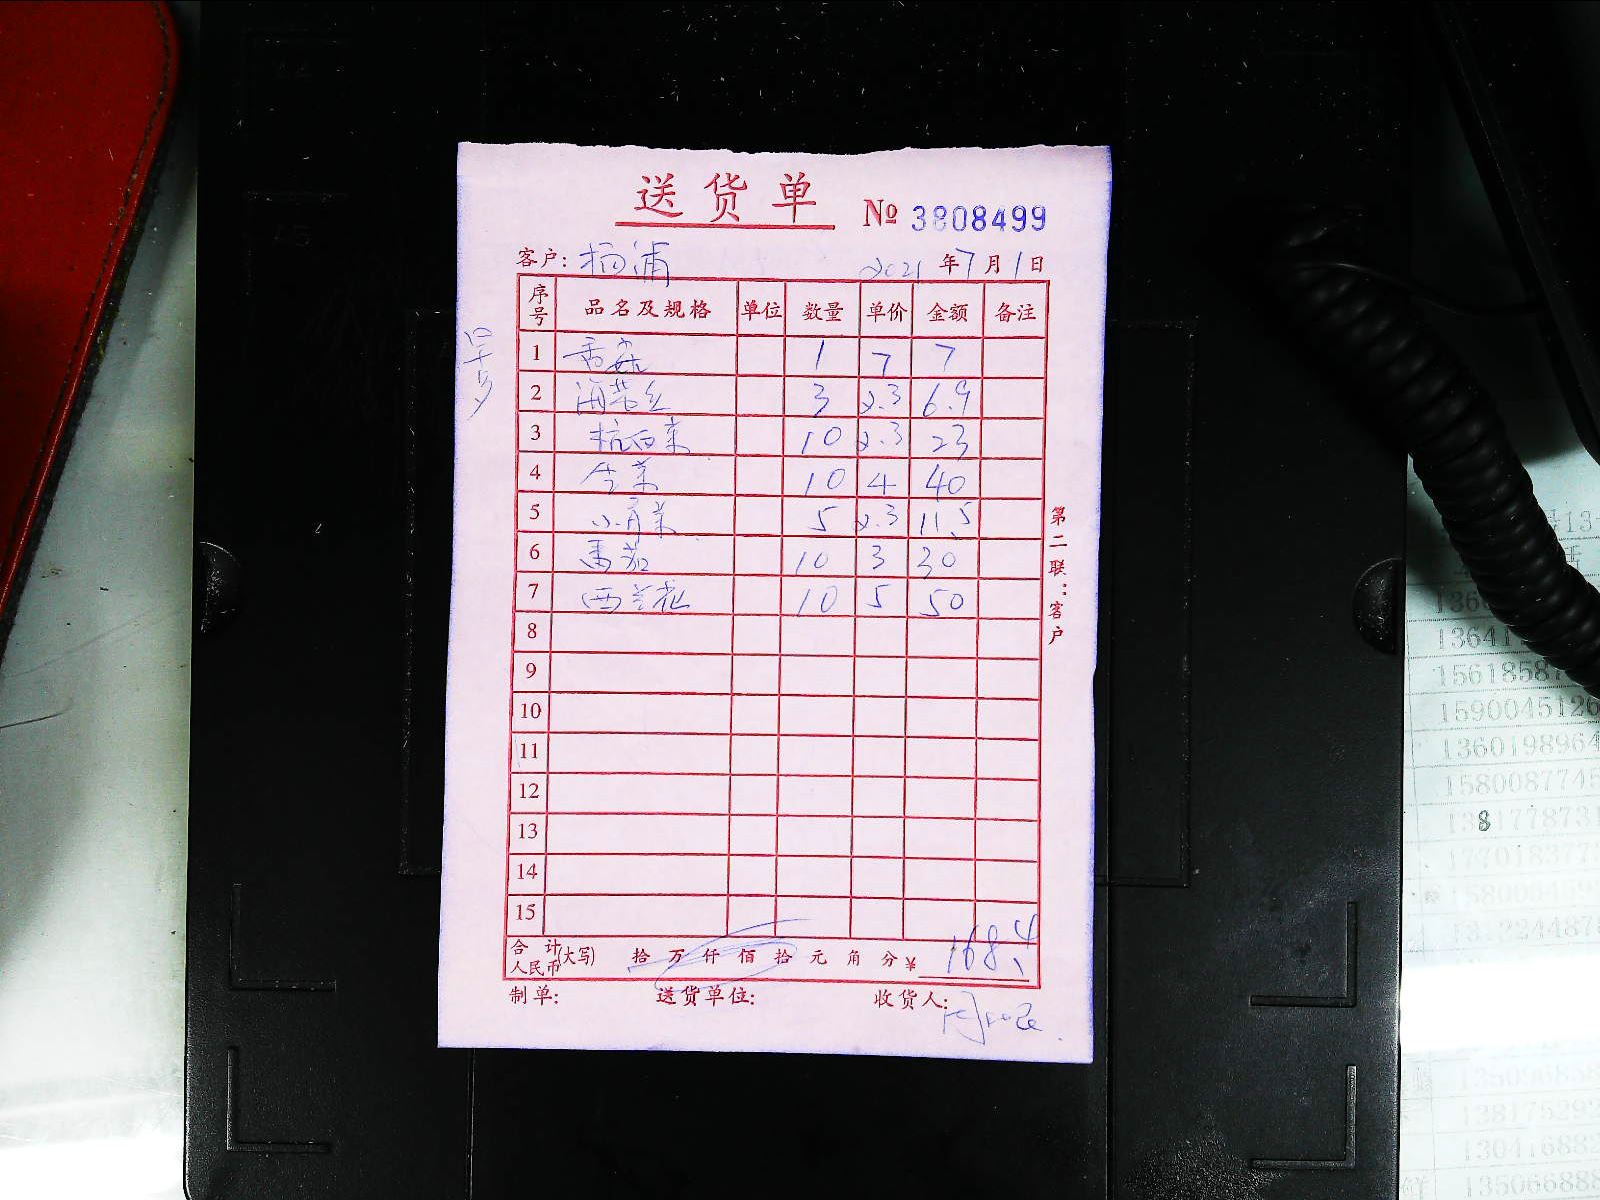 送货单 № 3808499
客户: 杨浦 2021年7月1日
序号 品名及规格 单位 数量 单价 金额 备注
1 香菇 1 7 7
2 海带丝 3 2.3 6.9
3 杭白菜 10 2.3 23
4 生菜 10 4 40
5 小青菜 5 2.3 11.5
6 番茄 10 3 30
7 西兰花 10 5 50
8
9
10
11
12
13
14
15
合计人民币(大写) 拾 万 仟 佰 拾 元 角 分 ¥ 168.4
制单: 送货单位: 收货人:
第二联:客户
1590045126
1360198964
1580087745